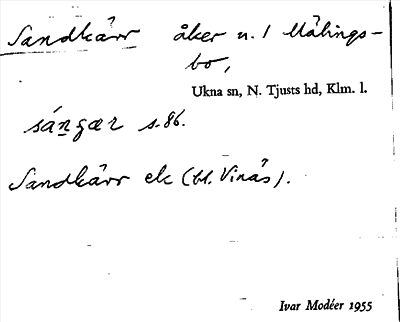 Sandkärr åker n. 1 Målings-
bo,
Ukna sn, N. Tjusts hd, Klm. l.
sáṉgær s. 86.
Sandkärr ek (bl. Vinäs).
Ivar Modéer 1955